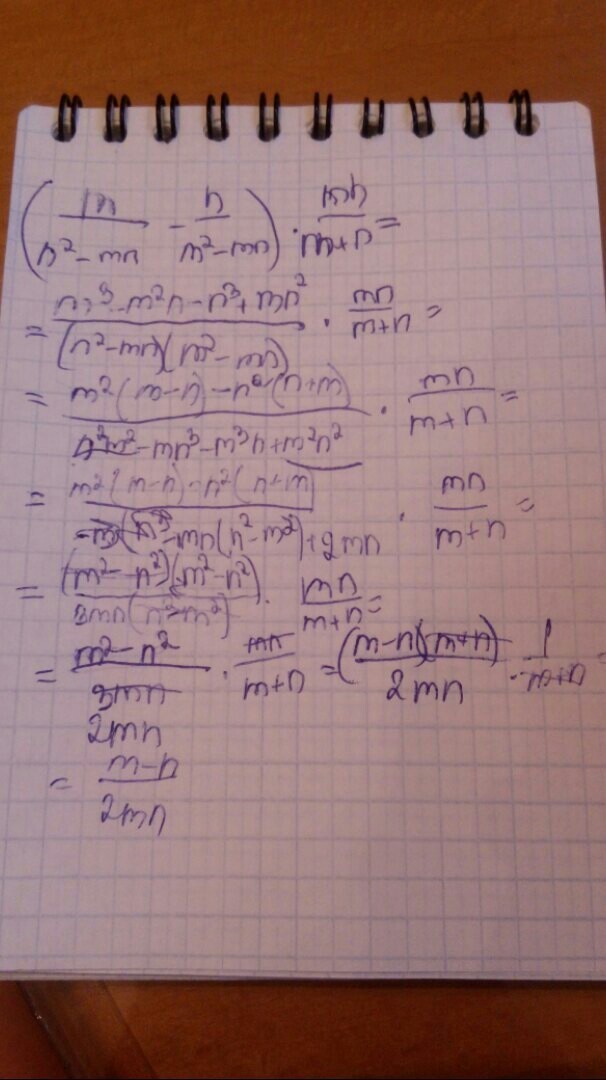 (m/(n²-mn) - n/(m²-mn)) · mn/(m+n) =
= (m³-m²n-n³+mn²)/((n²-mn)(m²-mn)) · mn/(m+n) =
= (m²(m-n)-n²(n+m))/(n³m²-mn³-m³n+m²n²) · mn/(m+n) =
= (m²(m-n)-n²(n+m))/(-mn(n²-m²)+2mn) · mn/(m+n) =
= ((m²-n²)(m²-n²))/(3mn(n²-m²)) · mn/(m+n) =
= (m²-n²)/(2mn) · mn/(m+n) = ((m-n)(m+n))/(2mn) · 1/(m+n) =
= (m-n)/(2mn)